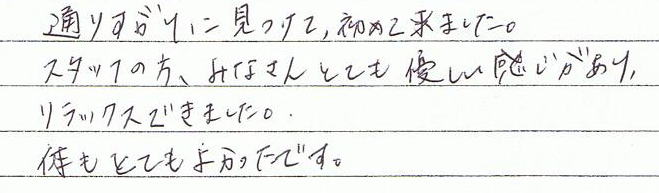 通りすがりに見つけて,初めて来ました。
スタッフの方、みなさんとても優しい感じがあり,
リラックスできました。
体もとてもよかったです。